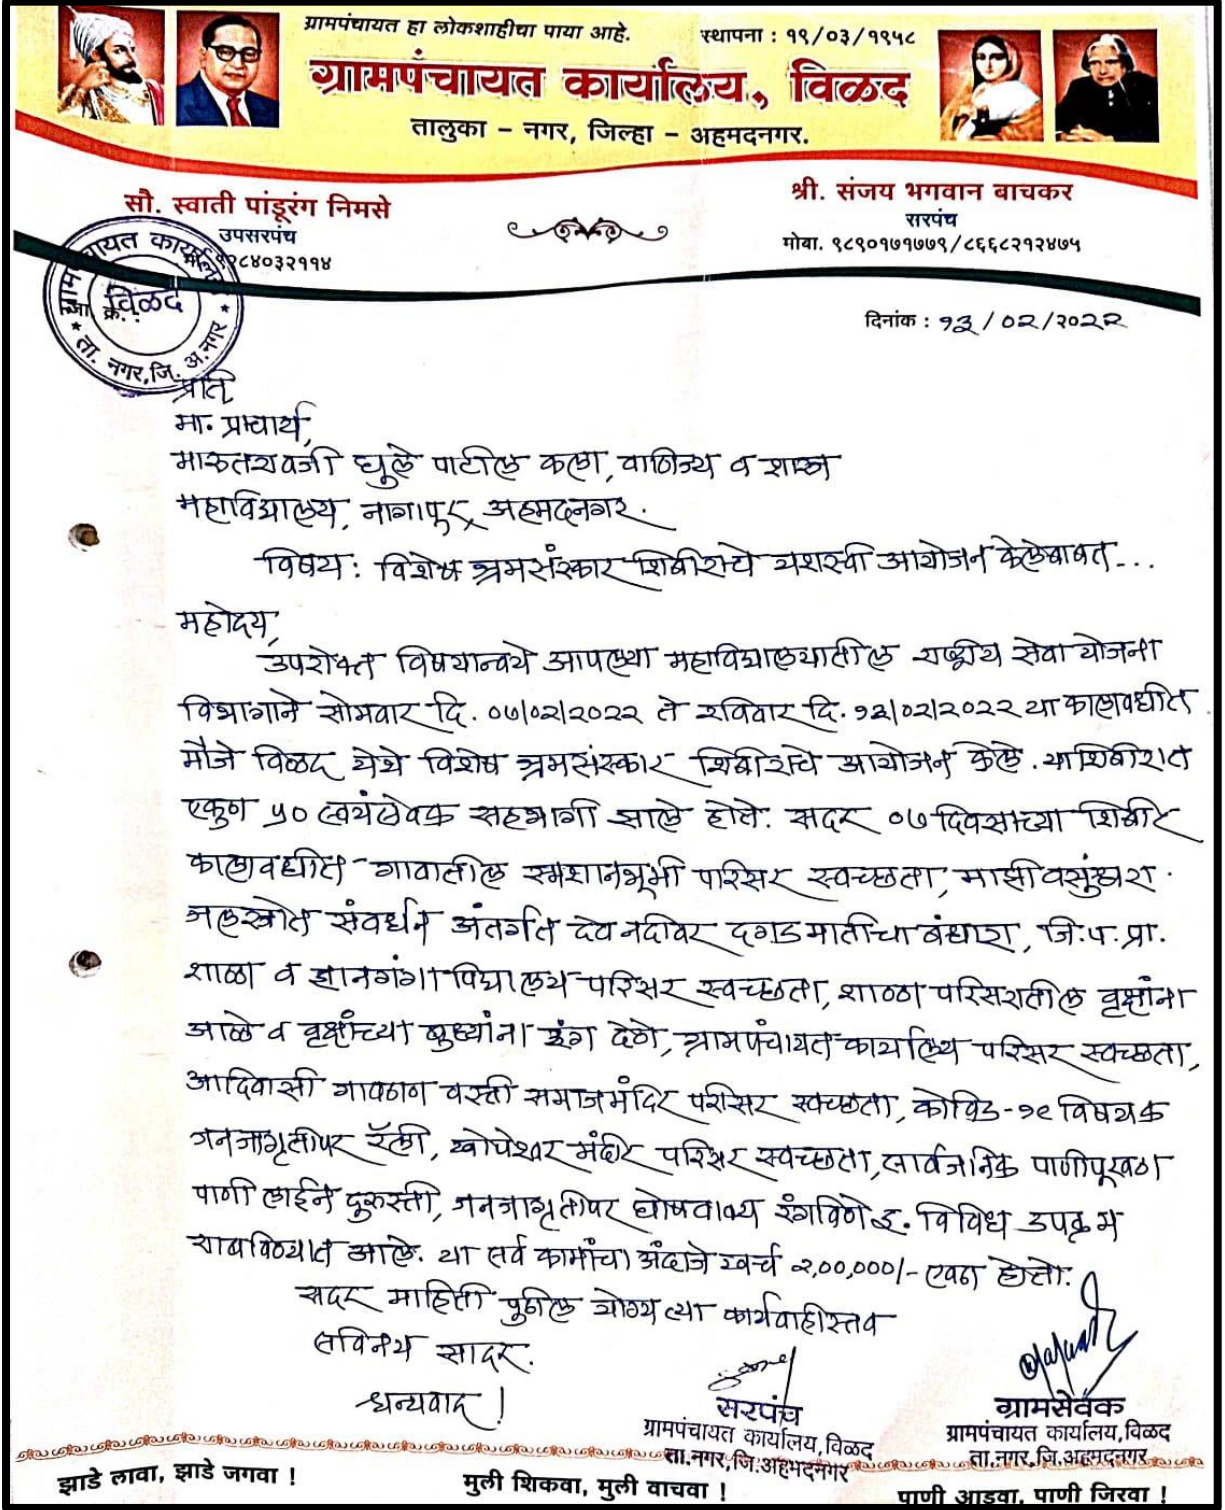 ग्रामपंचायत हा लोकशाहीचा पाया आहे. स्थापना : १९/०३/१९५८
ग्रामपंचायत कार्यालय, विळद
तालुका - नगर, जिल्हा - अहमदनगर.
सौ. स्वाती पांडूरंग निमसे
उपसरपंच
९२८४०३२११४
श्री. संजय भगवान बाचकर
सरपंच
मोबा. ९८९०१७१७७९/८६६८२१२४७५
ग्रामपंचायत कार्यालय
विळद
ता. नगर, जि. अ.नगर
जा. क्र. :
दिनांक : १३/०२/२०२२
प्रति
मा. प्राचार्य,
मारुतरावजी घुले पाटील कला, वाणिज्य व शास्त्र
महाविद्यालय, नागापुर, अहमदनगर.
विषय : विशेष श्रमसंस्कार शिबीराचे यशस्वी आयोजन केलेबाबत...
महोदय,
उपरोक्त विषयान्वये आपल्या महाविद्यालयातील राष्ट्रीय सेवा योजना
विभागाने सोमवार दि. ०७/०२/२०२२ ते रविवार दि. १३/०२/२०२२ या कालावधीत
मौजे विळद येथे विशेष श्रमसंस्कार शिबीराचे आयोजन केले. या शिबीरात
एकुण ५० स्वयंसेवक सहभागी झाले होते. सदर ०७ दिवसाच्या शिबीर
कालावधीत गावातील स्मशानभूमी परिसर स्वच्छता, माझी वसुंधरा
जलस्त्रोत संवर्धन अंतर्गत देव नदीवर दगड मातीचा बंधारा, जि.प.प्रा.
शाळा व ज्ञानगंगा विद्यालय परिसर स्वच्छता, शाळा परिसरातील वृक्षांना
आळे व वृक्षांच्या बुध्यांना रंग देणे, ग्रामपंचायत कार्यालय परिसर स्वच्छता,
आदिवासी गावठाण वस्ती समाजमंदिर परिसर स्वच्छता, कोविड-१९ विषयक
जनजागृतीपर रॅली, खोपेश्वर मंदीर परिसर स्वच्छता, सार्वजनिक पाणीपूरवठा
पाणी लाईन दुरुस्ती, जनजागृतीपर घोषवाक्य रंगविणे इ. विविध उपक्रम
राबविण्यात आले. या सर्व कामांचा अंदाजे खर्च २,००,०००/- एवढा होतो.
सदर माहिती पुढील योग्य त्या कार्यवाहीस्तव
सविनय सादर.
धन्यवाद !
सरपंच
ग्रामपंचायत कार्यालय, विळद
ता.नगर, जि.अहमदनगर
ग्रामसेवक
ग्रामपंचायत कार्यालय, विळद
ता.नगर, जि.अहमदनगर
झाडे लावा, झाडे जगवा ! मुली शिकवा, मुली वाचवा ! पाणी आडवा, पाणी जिरवा !